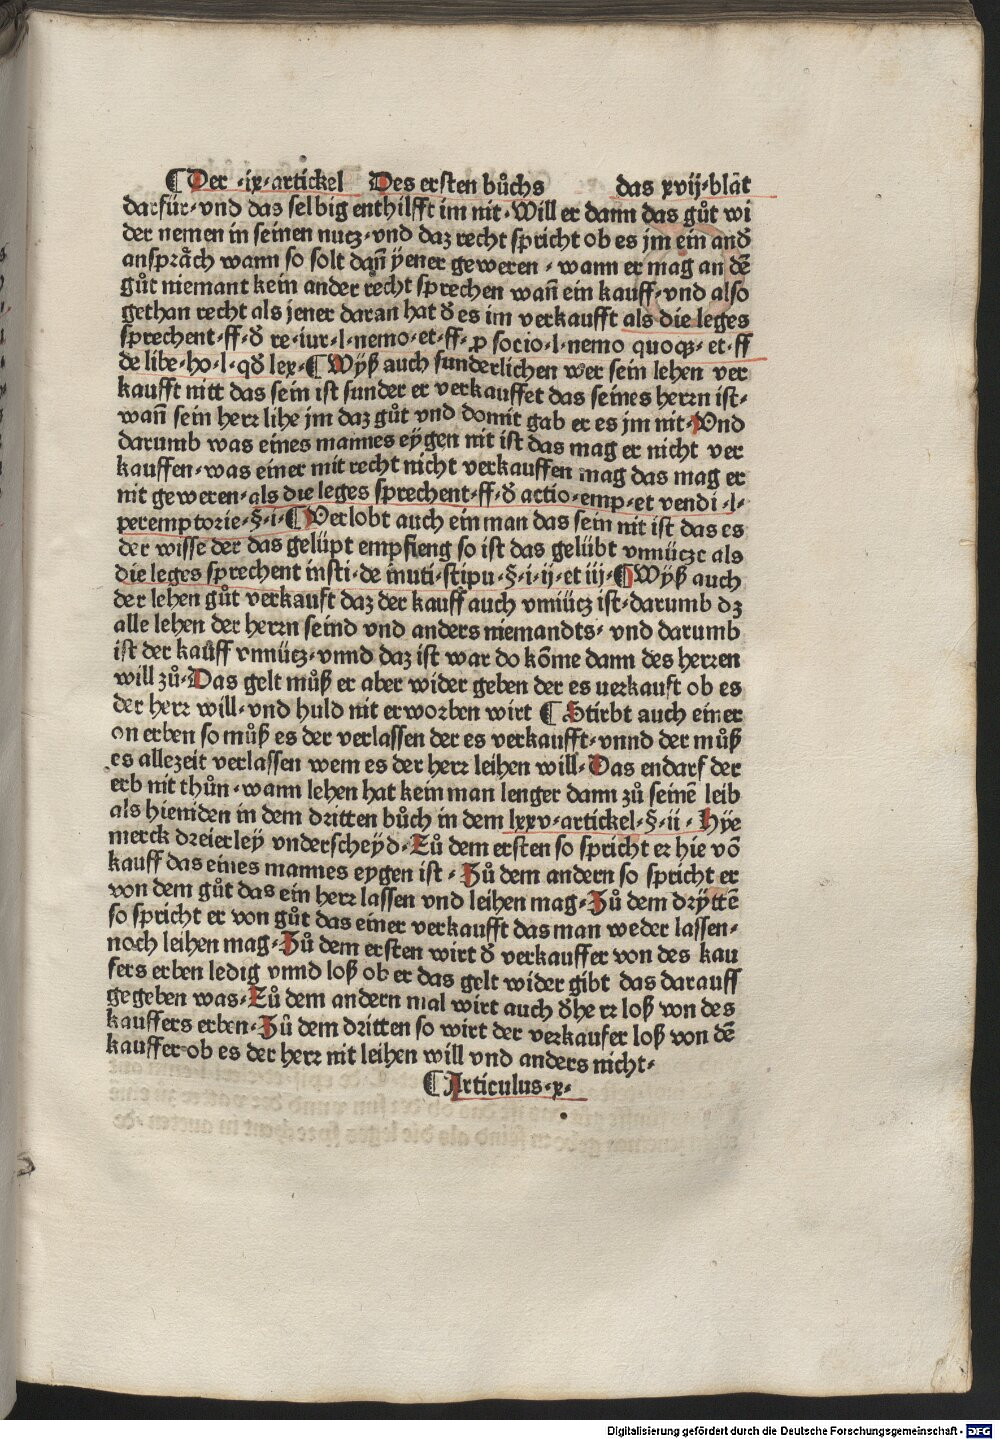 ¶ Der ·ix·artickel Des ersten bůchs das xvij·blat
darfür·vnd das selbig enthilfft im nit·Will er dann das gůt wi
der nemen in seinen nutz·vnd daz recht spricht ob es jm ein and̄
anspråch wann so solt dañ ÿener geweren·wann er mag an dē
gůt niemant kein ander recht sprechen wañ ein kauff·vnd also
gethan recht als jener daran hat d̄ es im verkaufft als die leges
sprechent·ff·d̄ re·iur·l·nemo·et·ff·ꝓ socio·l·nemo quoqꝫ·et·ff
de libe·ho·l·qd̄ lex·¶ Wÿß auch sunderlichen wer sein lehen ver
kaufft nitt das sein ist sunder er verkauffet das seines herrn ist·
wañ sein herr lihe jm daz gůt vnd domit gab er es jm nit·Vnd
darumb was eines mannes eygen nit ist das mag er nicht ver
kauffen·was einer mit recht nicht verkauffen mag das mag er
nit geweren·als die leges sprechent·ff·d̄ actio·emp·et vendi·l·
peremptorie·§·i·¶ Verlobt auch ein man das sein nit ist das es
der wisse der das gelüpt empfieng so ist das gelübt vnnücze als
die leges sprechent insti·de inuti·stipu·§·i·ij·et iij·¶ Wÿß auch
der lehen gůt verkauft daz der kauff auch vnnütz ist·darumb dz
alle lehen der herrn seind vnd anders niemandts·vnd darumb
ist der kauff vnnütz·vnnd daz ist war do kōme dann des herren
will zů·Das gelt můß er aber wider geben der es uerkauft ob es
der herr will·vnd huld nit erworben wirt ¶ Stirbt auch einer
on erben so můß es der verlassen der es verkaufft·vnnd der můß
es allezeit verlassen wem es der herr leihen will·Das endarf der
erb nit thůn·wann lehen hat kein man lenger dann zů seinē leib
als hieniden in dem dritten bůch in dem lxxv·artickel·§·ii· Hÿe
merck dreierley vnderscheyd·Zů dem ersten so spricht er hie vō
kauff das eines mannes eygen ist·Zů dem andern so spricht er
von dem gůt das ein herr lassen vnd leihen mag·Zů dem drÿttē
so spricht er von gůt das einer verkaufft das man weder lassen·
noch leihen mag·Zů dem ersten wirt d̄ verkauffer von des kau
fers erben ledig vnnd loß ob er das gelt wider gibt das darauff
gegeben was·Zů dem andern mal wirt auch d̄ herr loß von des
kauffers erben·Zů dem dritten so wirt der verkaufer loß von dē
kauffer ob es der herr nit leihen will vnd anders nicht·
¶ Articulus·x·
Digitalisierung gefördert durch die Deutsche Forschungsgemeinschaft - DFG